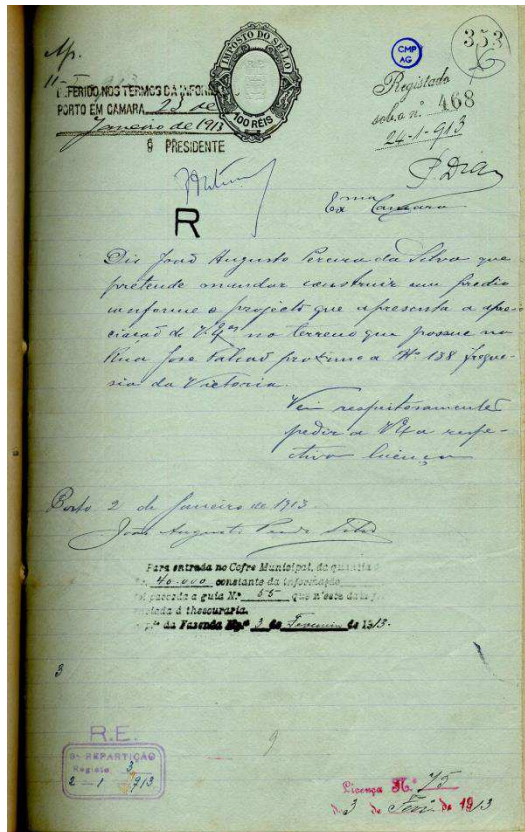 353
CMP
AG
IMPOSTO DO SELLO
100 RÉIS
Registado
sob o nº 468
24-1-913
DEFERIDO NOS TERMOS DA INFORMAÇÃO
PORTO EM CAMARA 23 de
Janeiro de 1913
O PRESIDENTE
R
Exma Camara
Diz João Augusto Pereira da Silva que
pretende mandar construir um predio
conforme o projecto que apresenta a apre-
ciação de V. Exas no terreno que possue na
Rua José Falcão proximo a Nº 138 fregue-
sia da Victoria.
Vem respeitosamente
pedir a V Exa a respe-
ctiva licença
Porto 2 de Janeiro de 1913
João Augusto Silva
Para entrada no Cofre Municipal, da quantia
40.000 constante da informação
passada a guia N.º 55 que n'esta data
á thesouraria.
da Fazenda Mp.al 3 de Fevereiro de 1913.
3
R.E.
3ª REPARTIÇÃO
Registo 3
2-1-913
9
Licença N.º 75
3 de Fev. de 1913